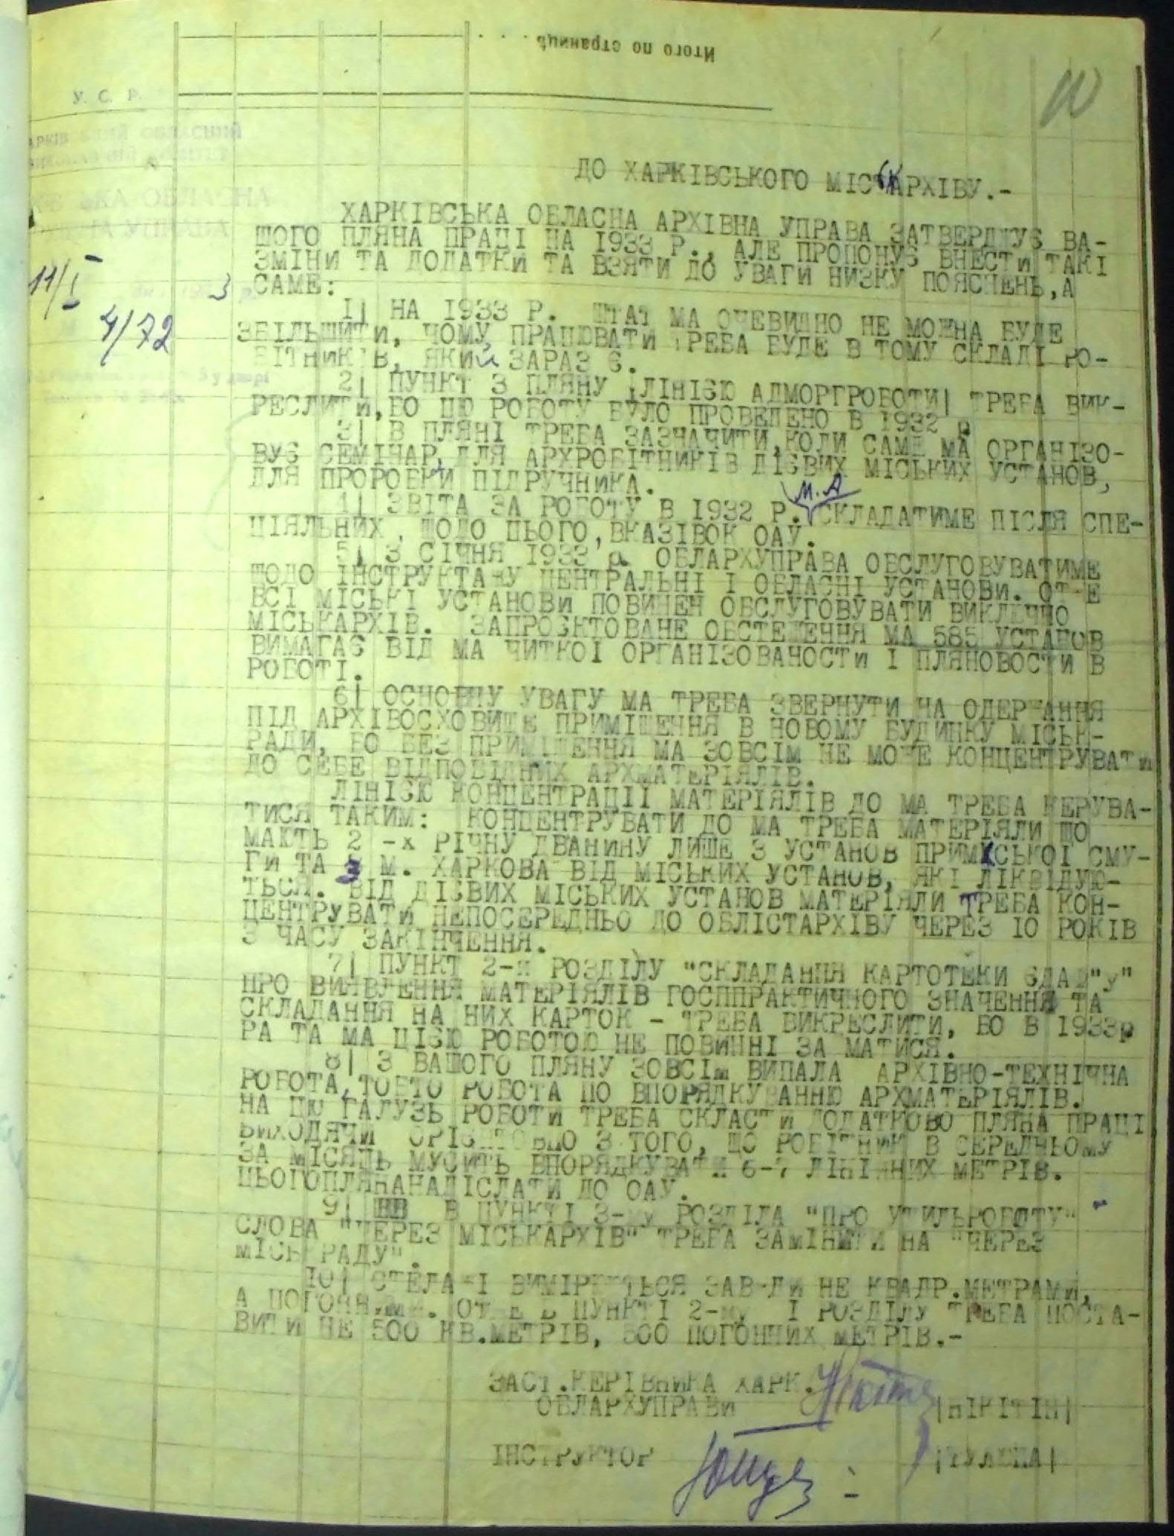 Итого по страниць
У. С. Р.
ОБЛАСНИЙ
ОБЛАСНА
УПРАВА
11/I
3
4/72
ДО ХАРКІВСЬКОГО МІСЬКАРХІВУ.-
ХАРКІВСЬКА ОБЛАСНА АРХІВНА УПРАВА ЗАТВЕРДЖУЄ ВА-
ШОГО ПЛЯНА ПРАЦІ НА 1933 Р., АЛЕ ПРОПОНУЄ ВНЕСТИ ТАКІ
ЗМІНИ ТА ДОДАТКИ ТА ВЗЯТИ ДО УВАГИ НИЗКУ ПОЯСНЕНЬ,А
САМЕ:
1| НА 1933 Р. ШТАТ МА ОЧЕВИДНО НЕ МОЖНА БУДЕ
ЗБІЛЬШИТИ, ЧОМУ ПРАЦЮВАТИ ТРЕБА БУДЕ В ТОМУ СКЛАДІ РО-
БІТНИКІВ, ЯКИЙ ЗАРАЗ Є.
2| ПУНКТ 3 ПЛЯНУ |ЛІНІЄЮ АДМОРГРОБОТИ| ТРЕБА ВИК-
РЕСЛИТИ,БО ЦЮ РОБОТУ БУЛО ПРОВЕДЕНО В 1932 р
3| В ПЛЯНІ ТРЕБА ЗАЗНАЧИТИ,КОЛИ САМЕ МА ОРГАНІЗО-
ВУЄ СЕМІНАР ДЛЯ АРХРОБІТНИКІВ ДІЄВИХ МІСЬКИХ УСТАНОВ,
ДЛЯ ПРОРОБКИ ПІДРУЧНИКА.
4| ЗВІТА ЗА РОБОТУ В 1932 Р. М.А СКЛАДАТИМЕ ПІСЛЯ СПЕ-
ЦІЯЛЬНИХ, ЩОДО ЦЬОГО,ВКАЗІВОК ОАУ.
5| З СІЧНЯ 1933 р. ОБЛАРХУПРАВА ОБСЛУГОВУВАТИМЕ
ЩОДО ІНСТРУКТАЖУ ЦЕНТРАЛЬНІ І ОБЛАСНІ УСТАНОВИ. ОТЖЕ
ВСІ МІСЬКІ УСТАНОВИ ПОВИНЕН ОБСЛУГОВУВАТИ ВИКЛЮЧНО
МІСЬКАРХІВ. ЗАПРОЕКТОВАНЕ ОБСТЕЖЕННЯ МА 585 УСТАНОВ
ВИМАГАЄ ВІД МА ЧИТКОІ ОРГАНІЗОВАНОСТИ І ПЛЯНОВОСТИ В
РОБОТІ.
6| ОСНОВНУ УВАГУ МА ТРЕБА ЗВЕРНУТИ НА ОДЕРЖАННЯ
ПІД АРХІВОСХОВИЩЕ ПРИМІЩЕННЯ В НОВОМУ БУДИНКУ МІСЬК-
РАДИ, БО БЕЗ ПРИМІЩЕННЯ МА ЗОВСІМ НЕ МОЖЕ КОНЦЕНТРУВАТИ
ДО СЕБЕ ВІДПОВІДНИХ АРХМАТЕРІЯЛІВ.
ЛІНІЄЮ КОНЦЕНТРАЦІІ МАТЕРІЯЛІВ ДО МА ТРЕБА КЕРУВА-
ТИСЯ ТАКИМ: КОНЦЕНТРУВАТИ ДО МА ТРЕБА МАТЕРІЯЛИ ЩО
МАЮТЬ 2 -Х РІЧНУ ДВАНИНУ ЛИШЕ З УСТАНОВ ПРИМІСЬКОІ СМУ-
ГИ ТА З М. ХАРКОВА ВІД МІСЬКИХ УСТАНОВ, ЯКІ ЛІКВІДУЮ-
ТЬСЯ. ВІД ДІЄВИХ МІСЬКИХ УСТАНОВ МАТЕРІЯЛИ ТРЕБА КОН-
ЦЕНТРУВАТИ НЕПОСЕРЕДНЬО ДО ОБЛІСТАРХІВУ ЧЕРЕЗ 10 РОКІВ
З ЧАСУ ЗАКІНЧЕННЯ.
7| ПУНКТ 2-й РОЗДІЛУ "СКЛАДАННЯ КАРТОТЕКИ ЄДАФ"у"
ПРО ВИЯВЛЕННЯ МАТЕРІЯЛІВ ГОСППРАКТИЧНОГО ЗНАЧЕННЯ ТА
СКЛАДАННЯ НА НИХ КАРТОК - ТРЕБА ВИКРЕСЛИТИ, БО В 1933р
РА ТА МА ЦІЄЮ РОБОТОЮ НЕ ПОВИННІ ЗА МАТИСЯ.
8| З ВАШОГО ПЛЯНУ ЗОВСІМ ВИПАЛА АРХІВНО-ТЕХНІЧНА
РОБОТА,ТОБТО РОБОТА ПО ВПОРЯДКУВАННЮ АРХМАТЕРІЯЛІВ.
НА ЦЮ ГАЛУЗЬ РОБОТИ ТРЕБА СКЛАСТИ ДОДАТКОВО ПЛЯНА ПРАЦІ
ВИХОДЯЧИ ОРІЄНТОВНО З ТОГО, ЩО РОБІТНИК В СЕРЕДНЬОМУ
ЗА МІСЯЦЬ МУСИТЬ ВПОРЯДКУВАТИ 6-7 ЛІНІЙНИХ МЕТРІВ.
ЦЬОГОПЛЯНАНАДІСЛАТИ ДО ОАУ.
9| В ПУНКТІ 3-му РОЗДІЛА "ПРО УТИЛЬРОБОТУ"
СЛОВА "ЧЕРЕЗ МІСЬКАРХІВ" ТРЕБА ЗАМІНИТИ НА "ЧЕРЕЗ
МІСЬКРАДУ".
10| СТЕЛАЖІ ВИМІРЮЮТЬСЯ ЗАВЖДИ НЕ КВАДР.МЕТРАМИ,
А ПОГОНИМИ. ОТЖЕ В ПУНКТІ 2-му І РОЗДІЛУ ТРЕБА ПОСТА-
ВИТИ НЕ 500 КВ.МЕТРІВ, 500 ПОГОННИХ МЕТРІВ.-
ЗАСТ.КЕРІВНИКА ХАРК.
ОБЛАРХУПРАВИ |НІКІТІН|
ІНСТРУКТОР